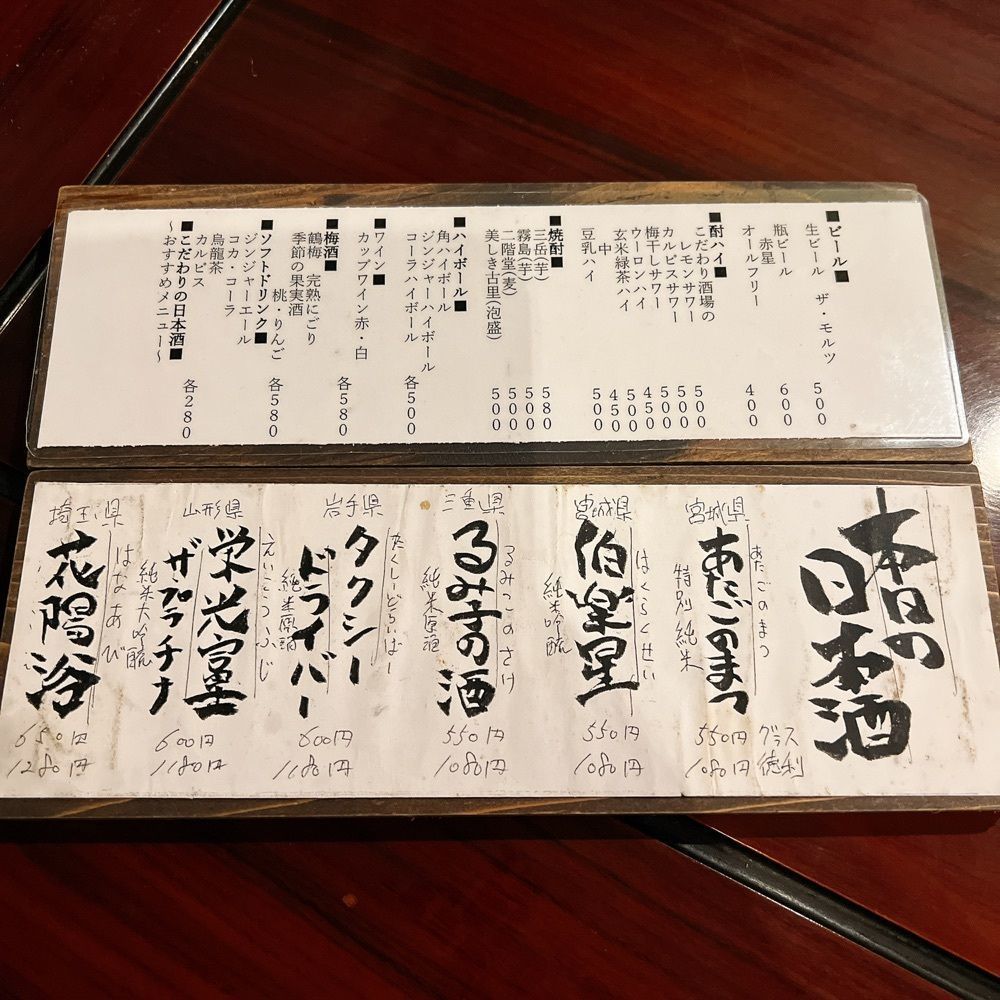 ■ビール■
生ビール　ザ・モルツ　500
瓶ビール　赤星　600
オールフリー　400
■酎ハイ■
こだわり酒場の
レモンサワー　500
カルピスサワー　500
梅干しサワー　450
ウーロンハイ　500
玄米緑茶ハイ　450
中
豆乳ハイ　500
■焼酎■
三岳(芋)　580
霧島(芋)　500
二階堂(麦)　500
美しき古里(泡盛)　500
■ハイボール■
角ハイボール
ジンジャーハイボール
コーラハイボール　各500
■ワイン■
カップワイン赤・白
各580
■梅酒■
鶴梅　完熟にごり
季節の果実酒
桃・りんご　各580
■ソフトドリンク■
ジンジャーエール
コカ・コーラ
烏龍茶
カルピス　各280
■こだわりの日本酒■
～おすすめメニュー～
本日の
日本酒
グラス
徳利
宮城県
あたごのまつ
あたごのまつ
特別純米
550円
1080円
宮城県
はくらくせい
伯楽星
純米吟醸
550円
1080円
三重県
るみこのさけ
るみ子の酒
純米原酒
550円
1080円
岩手県
たくしーどらいばー
タクシー
ドライバー
純米原酒
600円
1180円
山形県
えいこうふじ
栄光冨士
ザ・プラチナ
純米大吟醸
600円
1180円
埼玉県
はなあび
花陽浴
650円
1280円